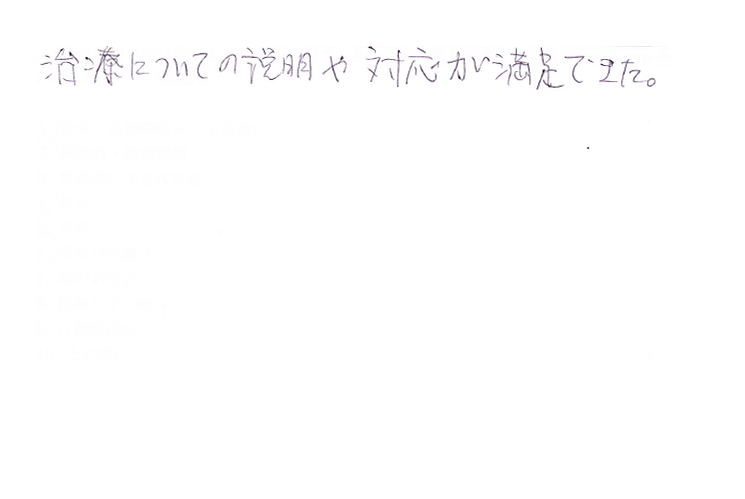 治療についての説明や対応が満足できた。